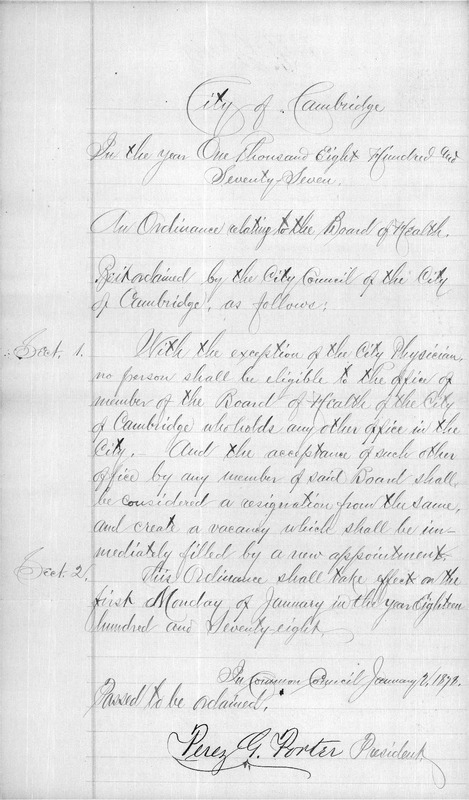 City of Cambridge
In the year One Thousand Eight Hundred and
Seventy-Seven.
An Ordinance relating to the Board of Health.
Be it ordained by the City Council of the City
of Cambridge, as follows:
Sect. 1. With the exception of the City Physician,
no person shall be eligible to the office of
member of the Board of Health of the City
of Cambridge who holds any other office in the
City. And the acceptance of such other
office by any member of said Board shall
be considered a resignation from the same,
and create a vacancy which shall be im-
mediately filled by a new appointment.
Sect. 2. This Ordinance shall take effect on the
first Monday of January in the year Eighteen
hundred and seventy-eight.
In Common Council January 2, 1878.
Passed to be ordained.
Perez G. Porter President